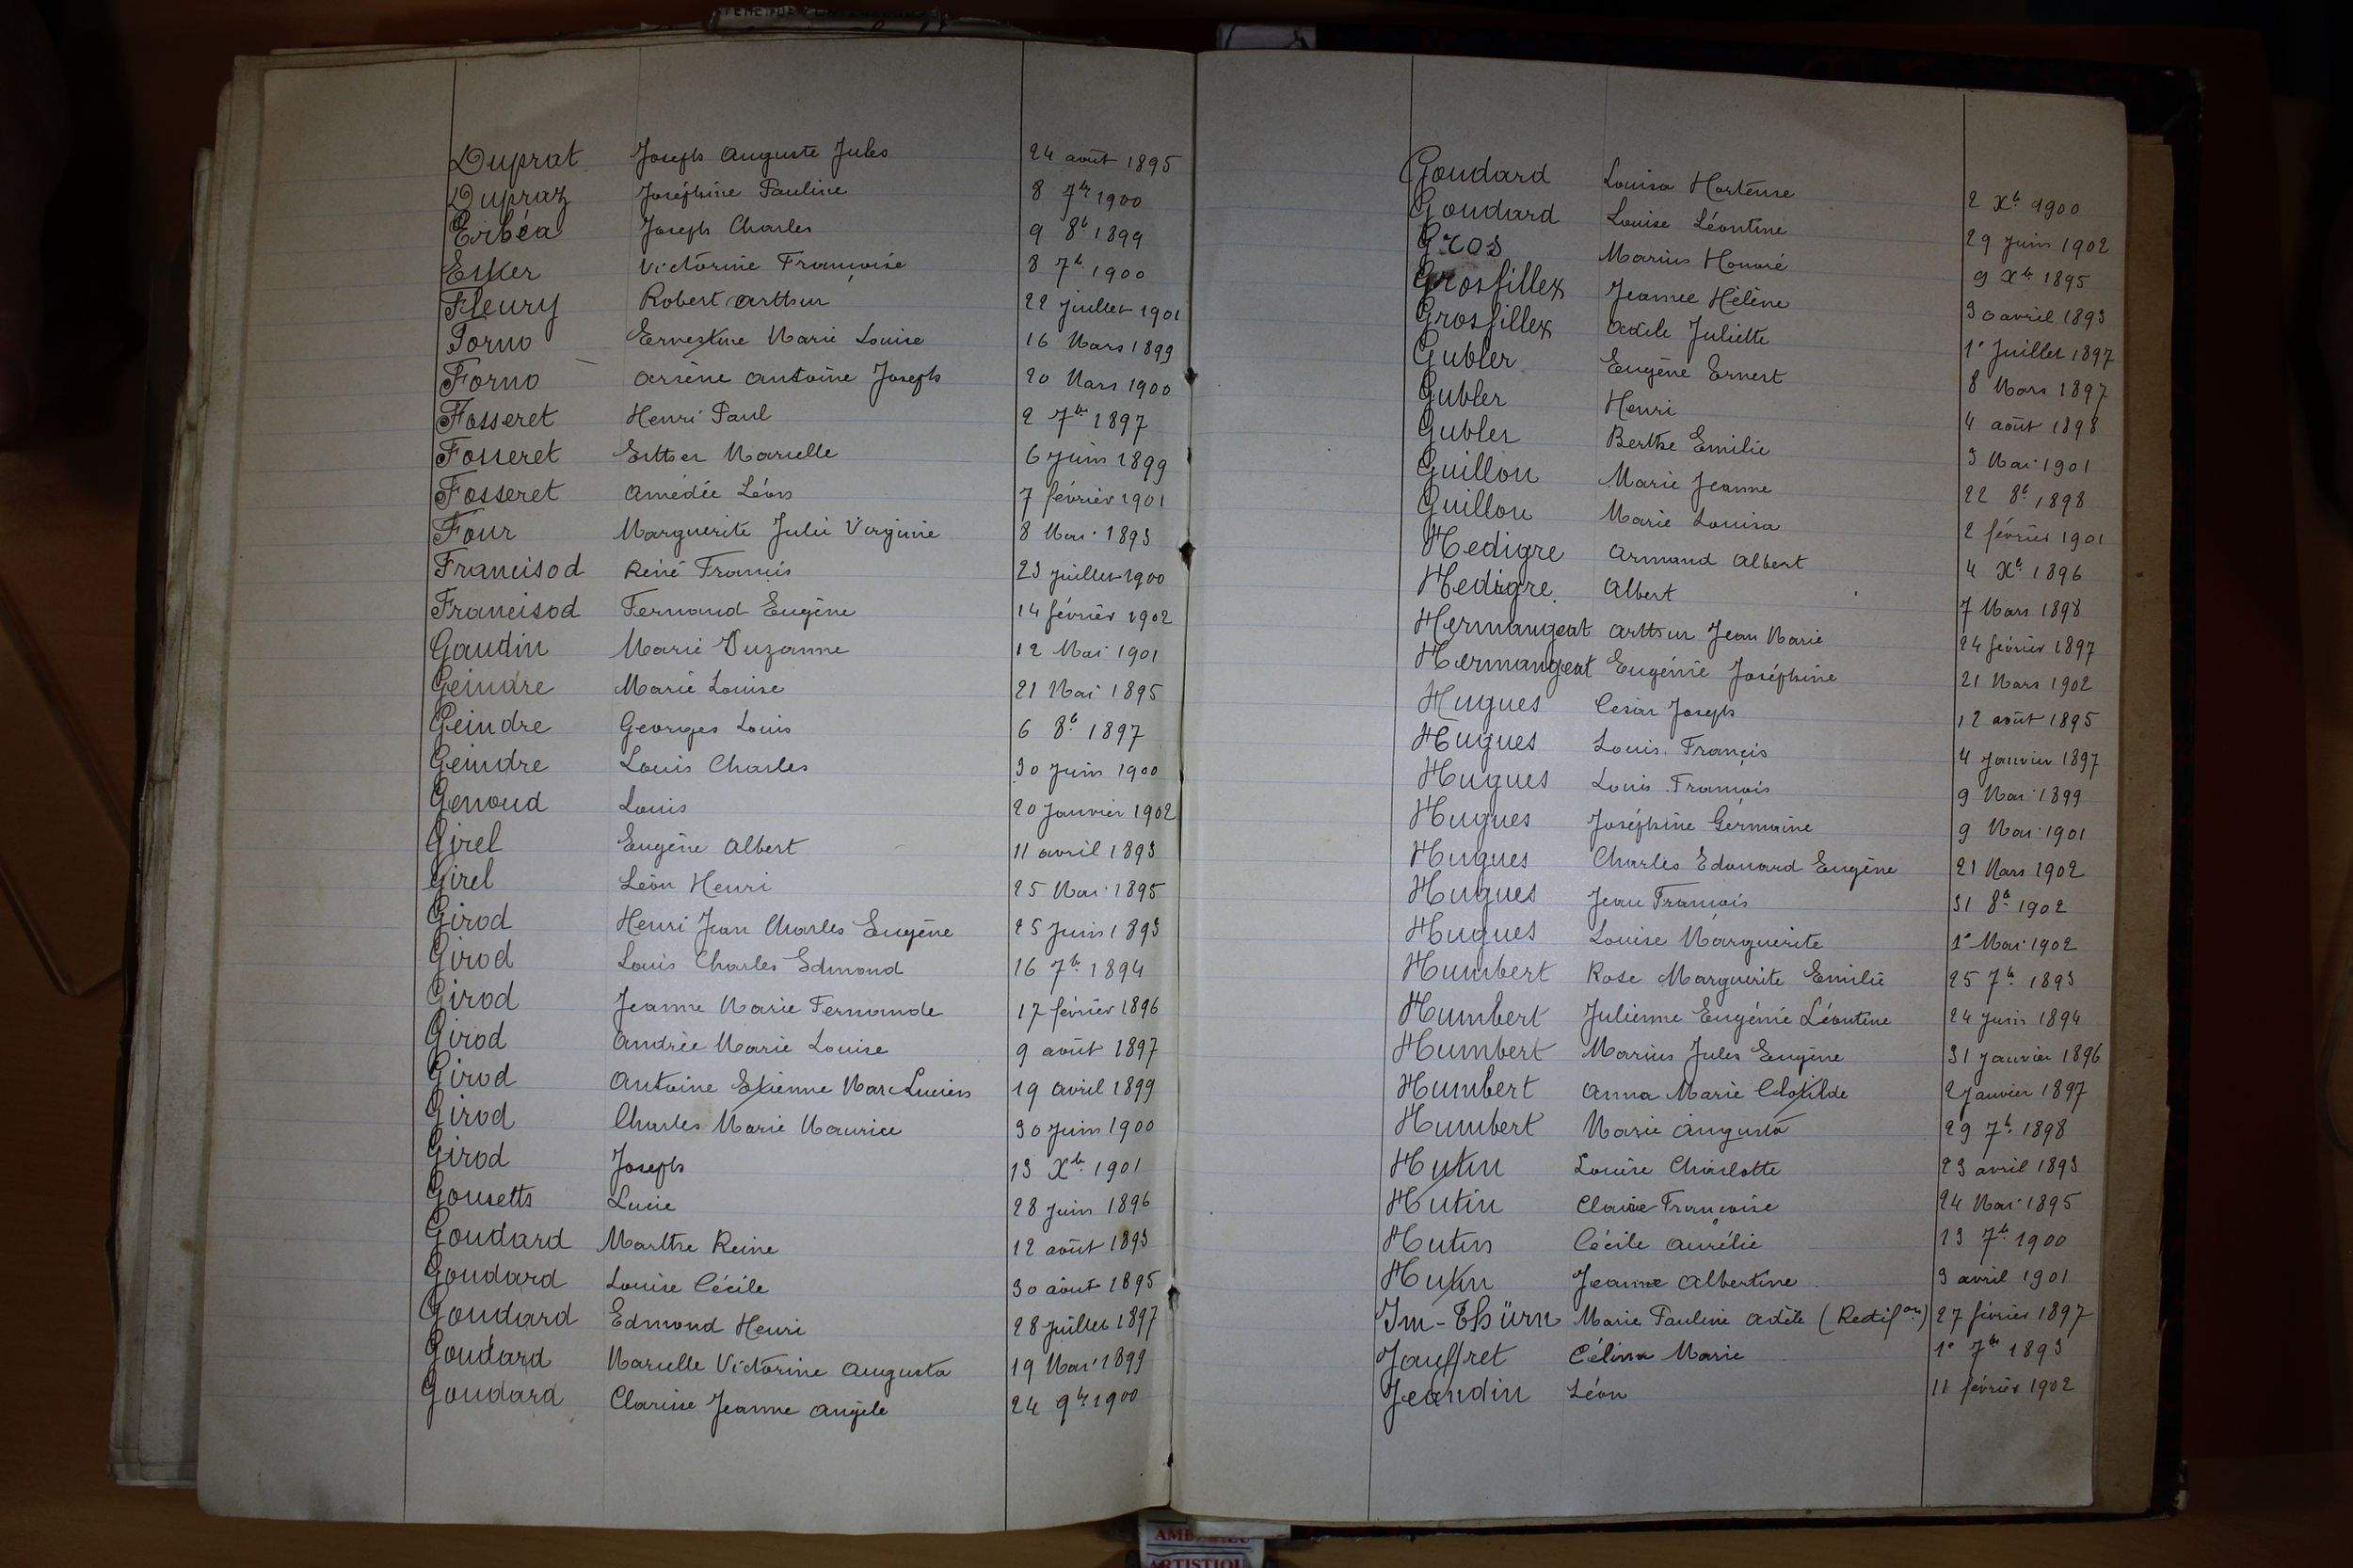 Duprat Joseph Auguste Jules 24 août 1895
Dupraz Joséphine Pauline 8 7bre 1900
Erbéa Joseph Charles 9 8b 1899
Esker Victorine Françoise 8 7b 1900
Fleury Robert Arthur 22 juillet 1901
Forno Ernestine Marie Louise 16 Mars 1899
Forno Arsène Antoine Joseph 20 Mars 1900
Fosseret Henri Paul 2 7bre 1897
Fosseret Esther Marcelle 6 juin 1899
Fosseret Amédée Léon 7 février 1901
Four Marguerite Julie Virginie 8 Mai 1893
Francisod René Francis 23 juillet 1900
Francisod Fernand Eugène 14 février 1902
Gaudin Marie Suzanne 12 Mai 1901
Geindre Marie Louise 21 Mai 1895
Geindre Georges Louis 6 8b 1897
Geindre Louis Charles 30 juin 1900
Genoud Louis 20 Janvier 1902
Girel Eugène Albert 11 avril 1893
Girel Léon Henri 25 Mai 1895
Girod Henri Jean Charles Eugène 25 Juin 1893
Girod Louis Charles Edmond 16 7b 1894
Girod Jeanne Marie Fernande 17 février 1896
Girod Andrée Marie Louise 9 août 1897
Girod Antoine Etienne Marc Lucien 19 avril 1899
Girod Charles Marie Maurice 30 Juin 1900
Girod Joseph 13 Xb 1901
Gousetts Lucie 28 juin 1896
Goudard Marthe Reine 12 août 1893
Goudard Louise Cécile 30 août 1895
Goudard Edmond Henri 28 juillet 1897
Goudard Marcelle Victorine Augusta 19 Mai 1899
Goudard Clarisse Jeanne Angèle 24 9b 1900
Goudard Louisa Hortense 2 Xb 1900
Goudard Louise Léontine 29 juin 1902
Gros Marius Honoré 9 Xb 1895
Grosfillex Jeanne Hélène 30 avril 1893
Grosfillex Adèle Juliette 1° Juillet 1897
Gubler Eugène Ernest 8 Mars 1897
Gubler Henri 4 août 1898
Gubler Berthe Emilie 3 Mai 1901
Guillon Marie Jeanne 22 8b 1898
Guillon Marie Louisa 2 février 1901
Hedigre Armand Albert 4 Xb 1896
Hedigre Albert 7 Mars 1898
Hermangeat Arthur Jean Marie 24 février 1897
Hermangeat Eugénie Joséphine 21 Mars 1902
Hugues César Joseph 12 août 1895
Hugues Louis François 4 Janvier 1897
Hugues Louis François 9 Mai 1899
Hugues Joséphine Germaine 9 Mai 1901
Hugues Charles Edouard Eugène 21 Mars 1902
Hugues Jean François 31 8b 1902
Hugues Louise Marguerite 1° Mai 1902
Humbert Rose Marguerite Emilie 25 7b 1893
Humbert Julienne Eugénie Léontine 24 juin 1894
Humbert Marius Jules Eugène 31 Janvier 1896
Humbert Anna Marie Clotilde 2 Janvier 1897
Humbert Marie Augusta 29 7b 1898
Hutin Louise Charlotte 23 avril 1893
Hutin Claire Françoise 24 Mai 1895
Hutin Cécile Aurélie 13 7b 1900
Hutin Jeanne Albertine 3 avril 1901
Im-Thürn Marie Pauline Adèle (Rectifon) 27 février 1897
Jauffret Célina Marie 1° 7b 1893
Jeandin Léon 11 février 1902
ARTISTIQU